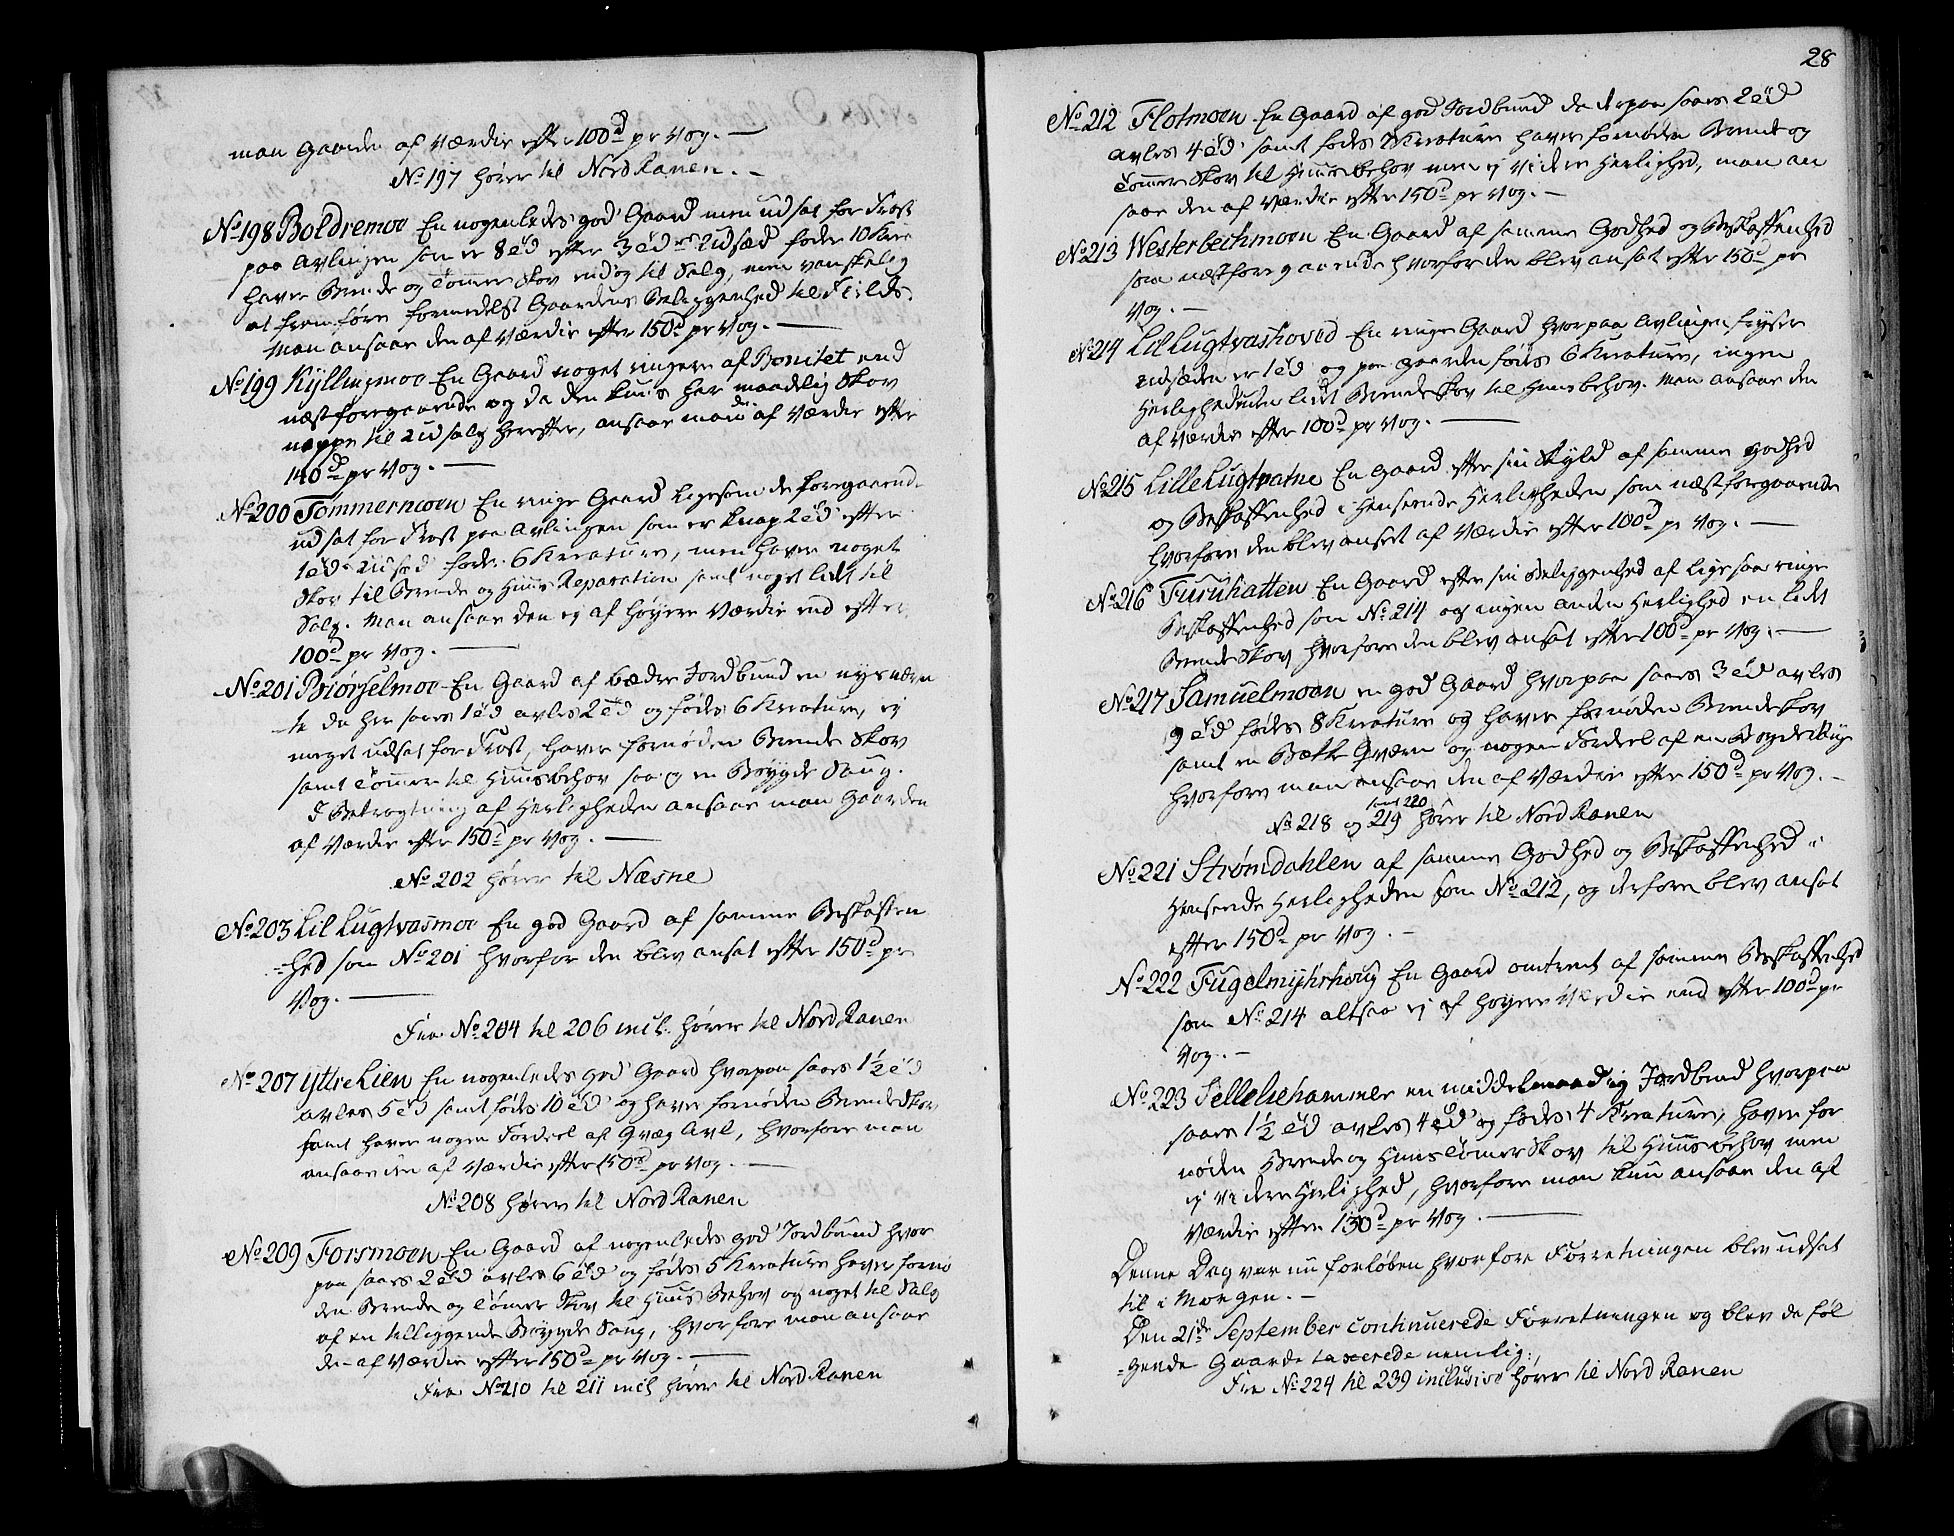 man Gaarden af Værdie efter 100 d pr Vog. —
No 197 hører til Nord Ranen. —
No 198 Boldremoe En nogenledes god Gaard men udsat for Frost
paa Avlingen som er 8 td efter 3 td Udsæd føder 10 Kre
haver Brænde og Tømmer Skov endog til Salg, men vanskelig
at fremføre formedelst Gaardens Beliggenhed til Fields.
Man ansaae den af Værdie efter 150 d pr Vog. —
No 199 Kyllingmoe En Gaard noget ringere af Bonitet end
næstforegaaende og da den kuns har maadelig Skov
neppe til Udsalg herefter, ansaae man den af Værdie efter
140 d pr Vog. —
No 200 Tømmermoen En ringe Gaard ligesom de foregaaende
udsat for Frost paa Avlingen som er knap 2 td efter
1 td Udsæd føder 6 Kreature, men haver noget
Skov til Brænde og Huus Reparation samt noget lidt til
Salg. Man ansaae den ej af høyere Værdie end efter
100 d pr Vog. —
No 201 Biørselmoe En Gaard af bædre Jordbund en nysnævn
te da her saaes 1 td avles 2 td og fødes 6 Kreature, ej
meget udsat for Frost, haver fornøden Brænde Skov
samt Tømmer til Huusbehov saa og en Bøygde Saug.
I Betragtning af Herligheden ansaae man Gaarden
af Værdie efter 150 d pr Vog. —
No 202 hører til Næsne
No 203 Lil Lugtvasmoe En god Gaard af samme Beskaffen
=hed som No 201 hvorfor den blev ansat efter 150 d pr
Vog. —
Fra No 204 til 206 incl. hører til Nord Ranen
No 207 Yttre Lien En nogenledes god Gaard hvorpaa saaes 1½ td
avles 5 td samt fødes 10 td og haver fornøden Brændeskov
samt haver nogen Fordeel af Qvæg Avl, hvorfore man
ansaae den af Værdie efter 150 d pr Vog. —
No 208 hører til Nord Ranen
No 209 Forsmoen En Gaard af nogenledes god Jordbund hvor
paa saaes 2 td avles 6 td og fødes 5 Kreature haver fornø
den Brænde og Tømer Skov til Huus Behov og noget til Salg
af en tilliggende Bøygde Saug, hvorfore man ansaae
den af Værdie efter 150 d pr Vog. —
Fra No 210 til 211 incl hører til Nord Ranen
28
No 212 Flotmoen En Gaard af god Jordbund da derpaa saaes 2 td
avles 4 td samt fødes 7 Kreature haver fornøden Brænde og
Tømmer Skov til Huusbehov men ej videre Herlighed, man an
saae den af Værdie efter 150 d pr Vog. —
No 213 Westerbechmoen En Gaard af samme Godhed og Beskaffenhed
som næstforegaaende hvorfor den blev ansat efter 150 d pr
Vog. —
No 214 Lil Lugtvashoved En ringe Gaard hvorpaa Avlingen fryser
Udsæden er 1 td og paa Gaarden føds 6 Kreature, ingen
Herlighed uden lidt Brændeskov til Huusbehov. Man ansaae den
af Værdie efter 100 d pr Vog. —
No 215 Lille Lugtvatne En Gaard efter sin Skyld af samme Godhed
og Beskaffenhed i Henseende Herligheden som næstforegaaende
hvorfore den blev anseet af Værdie efter 100 d pr Vog. —
No 216 Furuhatten En Gaard efter sin Beliggenhed af lige saa ringe
Beskaffenhed som No 214 og ingen anden Herlighed en lidt
Brænde Skov hvorfore den blev ansat efter 100 d pr Vog. —
No 217 Samuelmoen en god Gaard hvorpaa saaes 3 td avles
9 td fødes 8 Kreature og haver fornøden Brændeskov
samt en Bække Qværn og nogen Fordeel af en Bøygde
hvorfore man ansaae den af Værdie efter 150 d pr Vog. —
samt 220
No 218 og 219 hører til Nord Ranen
No 221 Strømdahlen af samme Godhed og Beskaffenhed i
Henseende Herligheden som No 212, og derfore blev ansat
efter 150 d pr Vog. —
No 222 Fugelmyhrhoug En Gaard omtrent af samme Beskaffenhed
som No 214 altsaa ej af høyere Værdie end efter 100 d pr
Vog. —
No 223 Selleliehammer en middelmaadig Jordbund hvorpaa
saaes 1½ td avles 4 td og fødes 4 Kreature, haver for
nøden Brænde og Huus Tømer Skov til Huusbehov men
ej videre Herlighed, hvorfore man kun ansaae den af
Værdie efter 130 d pr Vog. —
Denne Dag var nu forløben hvorfore Forretningen blev udsat
til i Morgen. —
Den 21de September continuerede Forretningen og blev de føl
=gende Gaarde taxerede nemlig:
Fra No 224 til 239 inclusive hører til Nord Ranen